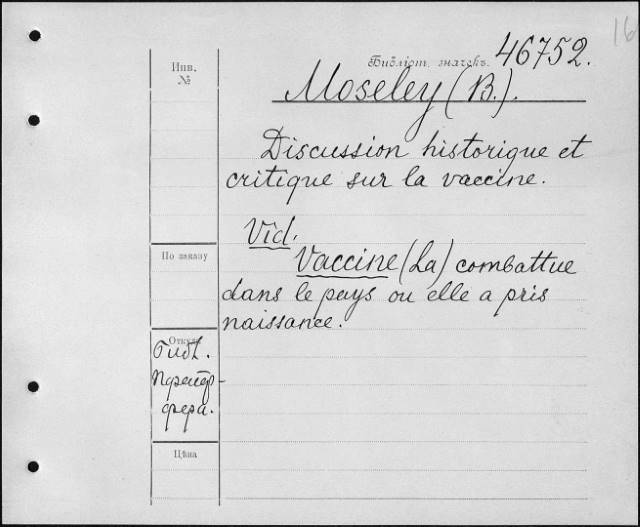 16
Библіот. значекъ. 46752.
Инв.
№
Moseley (B.).
Discussion historique et
critique sur la vaccine.
Vid.
Vaccine (La) combattue
dans le pays ou elle a pris
naissance.
По заказу
Откуда
Библ.
Пфейф-
фера.
Цѣна